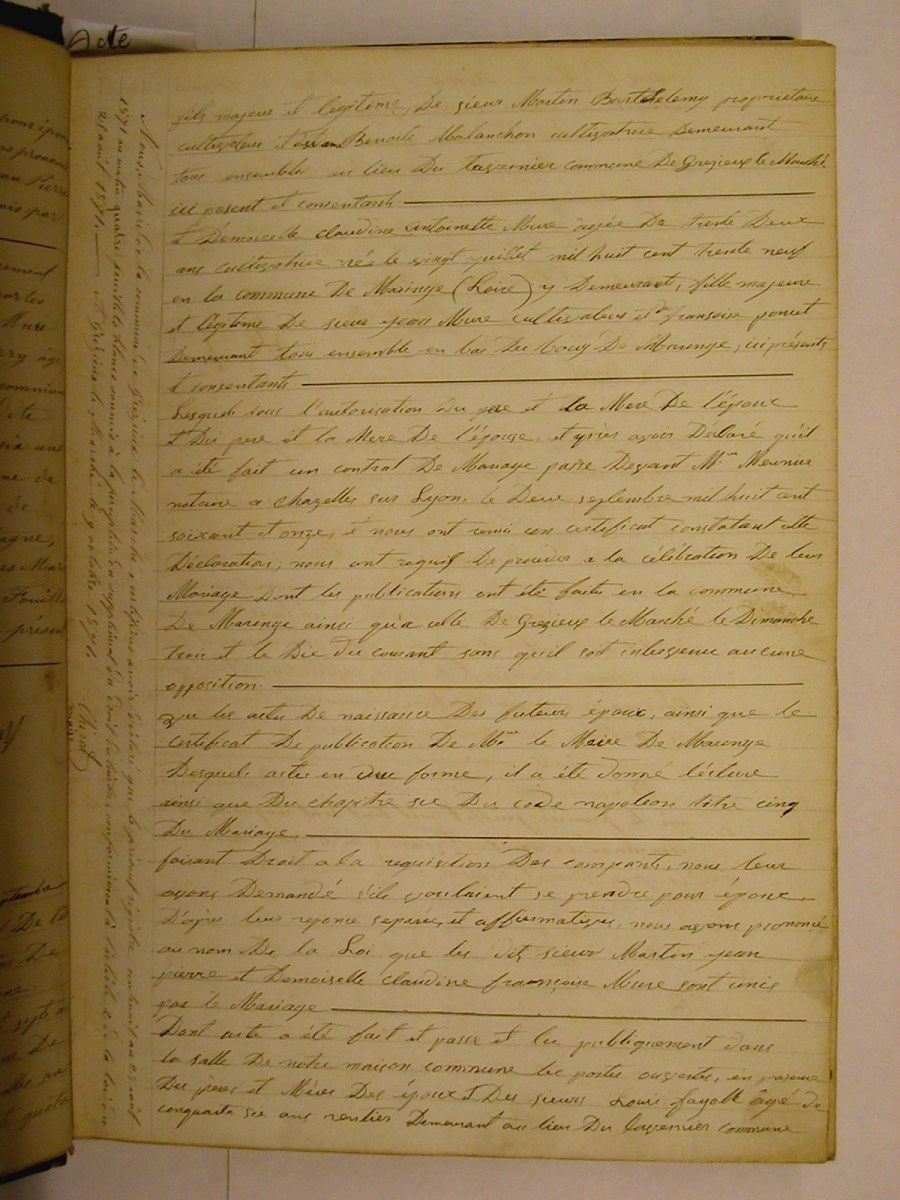 Acte
fils majeur et legitime, De sieur Martin Barthelemy proprietaire
cultivateur et Benoite Malanchon cultivatrice Demeurant
tous ensembles au lieu Du tavernier commune De Grezieux le Marché
ici present et consentants.
et Demoiselle claudine antoinette Mure agée De trente Deux
ans cultivatrice née le vingt juillet mil huit cent trente neuf
en la commune De Maringe (Loire) y Demeurant, fille majeure
et légitime De sieur jean Mure cultivateur et françoise poncet
Demeurant tous ensemble en bas Du bourg De Marenge, ici présents
et consentants
Lesquels sous l'autorisation Du pere et la Mere De l'époux
et Du pere et la Mere De l'épouse, et après avoir Déclaré qu'il
a été fait un contrat De Mariage passé Devant Me Meunier
notaire a chazelles sur Lyon, le Deux septembre mil huit cent
soixant et onze, et nous ont remis un certificat constatant cette
Déclaration; nous ont requis De proceder a la célébration De leur
Mariage Dont les publications ont été faites en la commune
De Marenge ainsi qu'a celle De Grezieux le Marché le Dimanche
trois et le Dix du courant sans qu'il soit intervenu aucune
opposition.
Vu les actes De naissance Des futeurs époux, ainsi que le
certificat De publication De Mr le Maire De Marenge
Desquels actes en due forme, il a été donné lecture
ainsi que Du chapitre six Du code napoleon titre cinq
Du Mariage,
faisant Droit a la requisition Des comparants, nous leur
avons Demandé s'ils voulaient se prendre pour époux,
D'après leur reponce separée, et affirmatives, nous avons prononcé
au nom De la Loi que les dits sieur Martin jean
pierre et Demoiselle claudine françoise Mure sont unis
par le Mariage
Dont acte a été fait et passé et lu publiquement dans
la salle De notre maison commune les portes ouvertes, en presence
Des peres et Mères Des époux et Des sieurs Louis fayolle agé De
cinquante six ans rentier Demeurant au lieu Du tavernier commune
Nous, Maire de la commune de Grézieux le Marché, certifions avoir déclaré que le présent registre contenait au 25 août
1871 au moins quatre feuillets blancs soumis à la perception du supplément du Droit de timbre conformément à l'article 2 de la loi du
25 août 1871. — A Grézieux le Marché le 9 octobre 1871.
maire